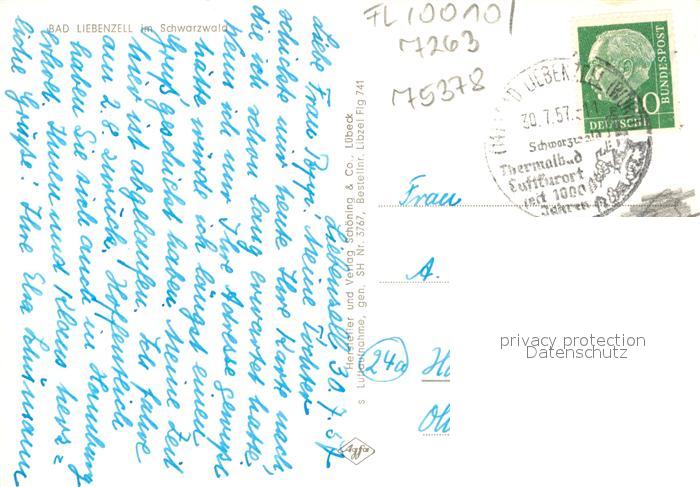 BAD LIEBENZELL im Schwarzwald
Liebenzell 30.7.57
Liebe Frau Poppi! Meine Tochter
schickte mir heute Ihre Karte nach,
die ich schon lang erwartet hatte.
Wenn ich nur Ihre Adresse gewußt
hätte würde ich längst einen
Gruß geschickt haben. Meine Zeit
hier ist abgelaufen. Ich fahre
am 2.8. zurück. Hoffentlich
haben Sie sich und in Hamburg
erholt. Ihnen und Klaus herz=
liche Grüße! Ihre Elsa
Hersteller und Verlag Schöning & Co., Lübeck
s Luftaufnahme, gen. SH Nr. 3767, Bestellnr. Libzel Flg 741
Agfa
FL10010/
7263
75378
10
DEUTSCHE
BUNDESPOST
BAD LIEBENZELL
30.7.57
Schwarzwald
Thermalbad
Luftkurort
seit 1000
Jahren
Frau
A.
24a
privacy protection
Datenschutz